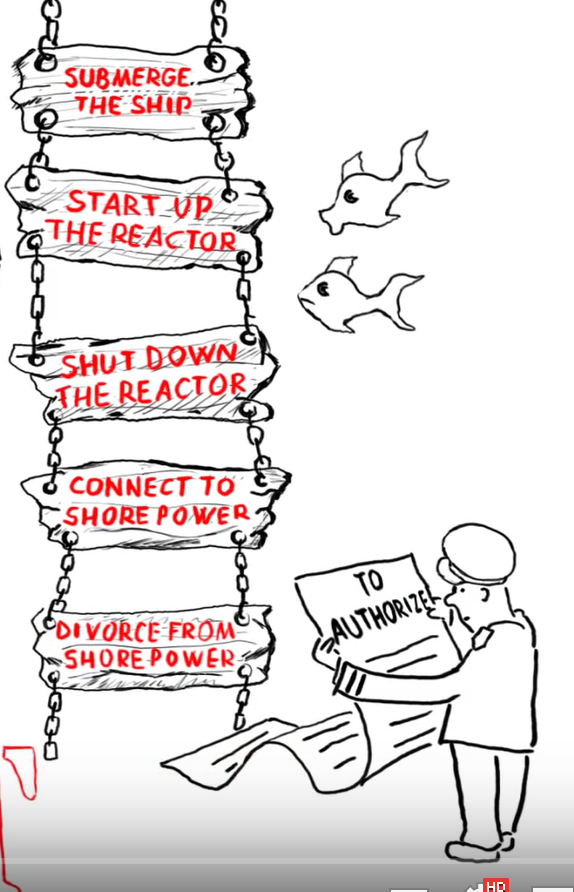 SUBMERGE
THE SHIP
START UP
THE REACTOR
SHUT DOWN
THE REACTOR
CONNECT TO
SHORE POWER
DIVORCE FROM
SHORE POWER
TO
AUTHORIZE
HD